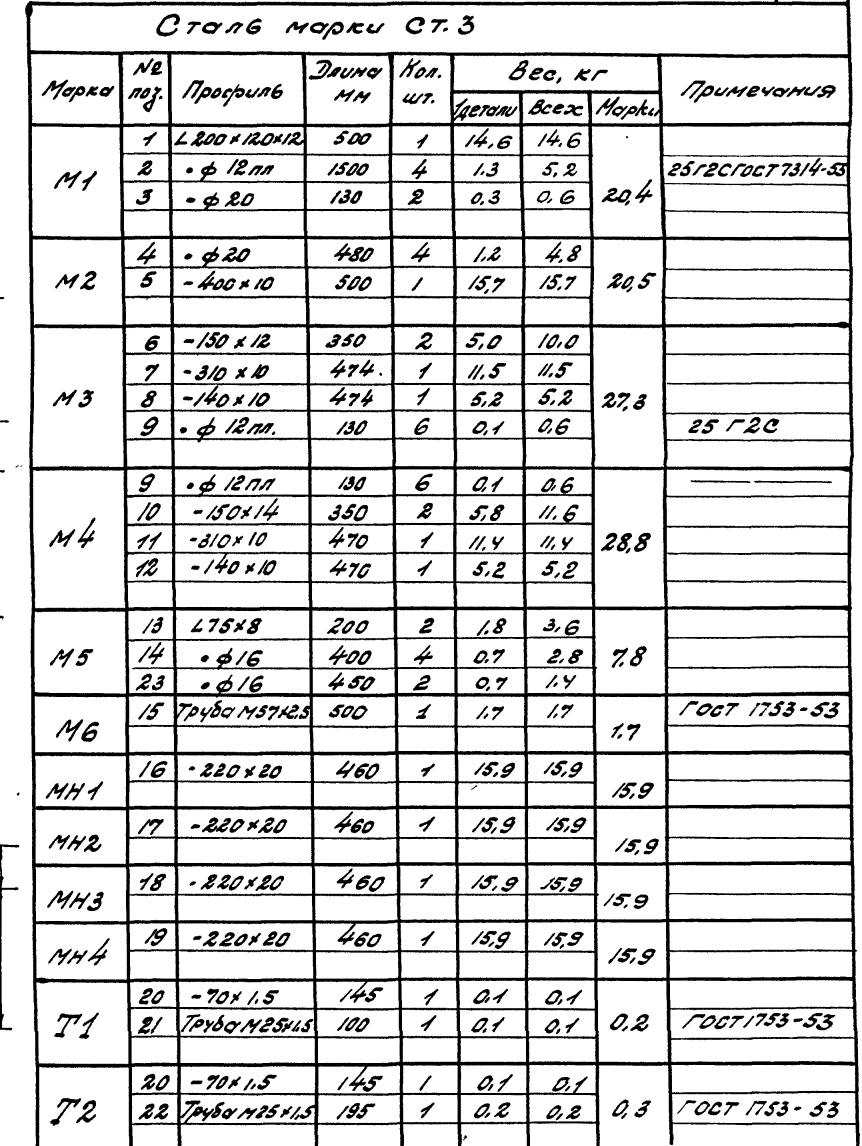 Сталь марки Ст.3
Марка № поз. Профиль Длина мм Кол. шт. Вес, кг Примечания
1детали Всех Марки
М1 20,4
1 L200×120×12 500 1 14,6 14,6
2 • ϕ 12пл 1500 4 1.3 5,2 25Г2С ГОСТ 7314-55
3 - ϕ 20 130 2 0,3 0,6
М2 20,5
4 • ϕ 20 480 4 1,2 4,8
5 - 400×10 500 1 15,7 15,7
М3 27,3
6 -150×12 350 2 5,0 10,0
7 -310×10 474 1 11,5 11,5
8 -140×10 474 1 5,2 5,2
9 • ϕ 12пл. 130 6 0,1 0,6 25 Г2С
М4 28,8
9 • ϕ 12пл 130 6 0,1 0,6 — —
10 -150×14 350 2 5,8 11,6
11 -310×10 470 1 11,4 11,4
12 -140×10 470 1 5,2 5,2
М5 7,8
13 L75×8 200 2 1,8 3,6
14 • ϕ 16 400 4 0,7 2,8
23 • ϕ 16 450 2 0,7 1,4
М6 1,7
15 Труба М57×2,5 500 1 1,7 1,7 ГОСТ 1753-53
МН1 15,9
16 -220×20 460 1 15,9 15,9
МН2 15,9
17 -220×20 460 1 15,9 15,9
МН3 15,9
18 -220×20 460 1 15,9 15,9
МН4 15,9
19 -220×20 460 1 15,9 15,9
Т1 0,2
20 -70×1,5 145 1 0,1 0,1
21 Труба М25×1,5 100 1 0,1 0,1 ГОСТ 1753-53
Т2 0,3
20 -70×1,5 145 1 0,1 0,1
22 Труба М25×1,5 195 1 0,2 0,2 ГОСТ 1753-53